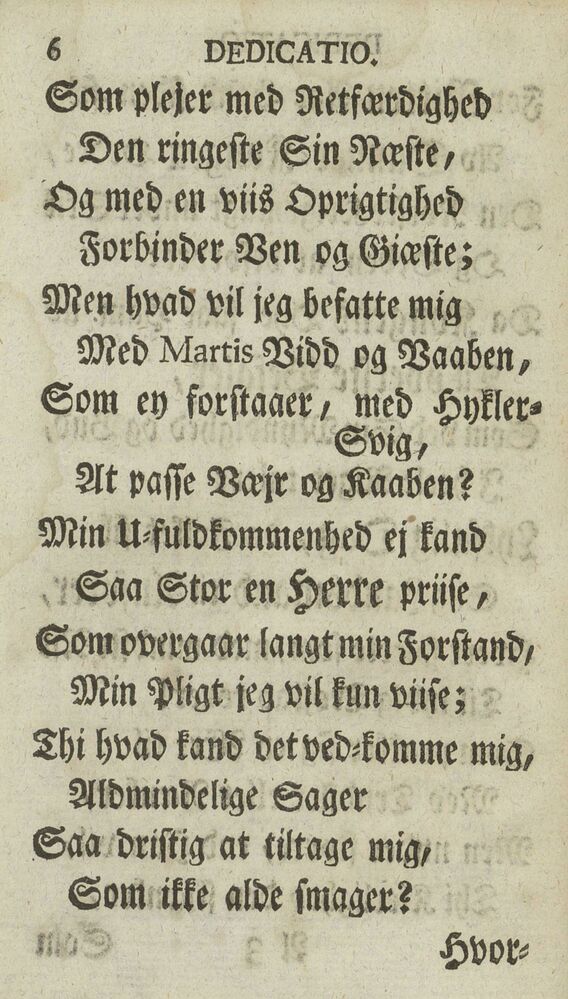 6 DEDICATIO.
Som plejer med Retfærdighed
Den ringeste Sin Næste,
Og med en viis Oprigtighed
Forbinder Ven og Giæste;
Men hvad vil jeg befatte mig
Med Martis Vidd og Vaaben,
Som ey forstaaer, med Hykler-
Svig,
At passe Væjr og Kaaben?
Min U-fuldkommenhed ej kand
Saa Stor en Herre priise,
Som overgaar langt min Forstand,
Min Pligt jeg vil kun viise;
Thi hvad kand det ved-komme mig,
Aldmindelige Sager
Saa dristig at tiltage mig,
Som ikke alde smager?
Hvor-